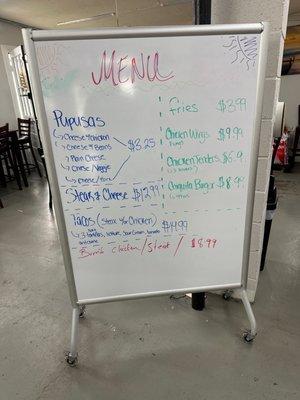 MENU
Pupusas
Cheese & Chicken
Cheese & Beans
Plain Cheese
Cheese/Veggie
Cheese/Pork
$3.25
Steak & Cheese $12.99
Tacos (Steak & or Chicken)
3 tortillas, lettuce, Sour Cream, tomato
$14.99
Burrito chicken/steak/ $8.99
Fries $3.99
Chicken Wings $9.99
Chicken Tenders $6.9
Angus Burger $8.99